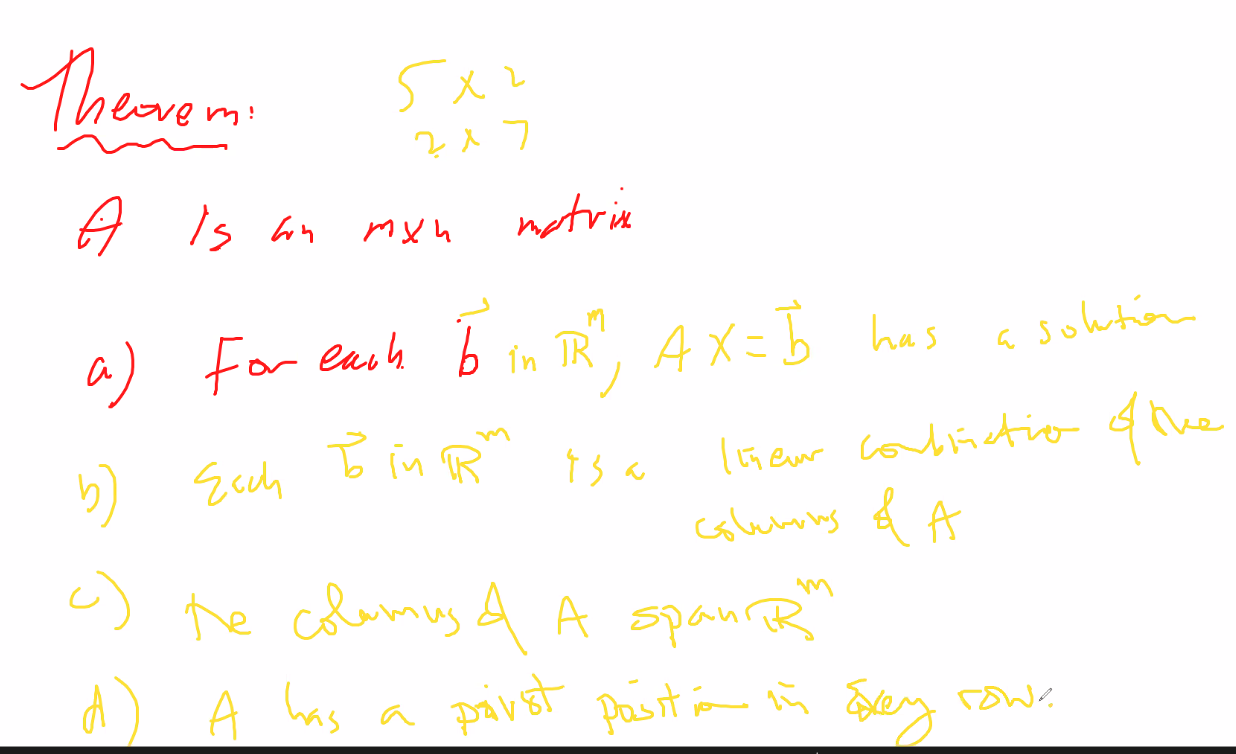 Theorem:
5 x 2
2 x 7
A is an mxn matrix
a) For each b⃗ in ℝᵐ, AX = b⃗ has a solution
b) Each b⃗ in ℝᵐ is a linear combination of the
columns of A
c) The columns of A span ℝᵐ
d) A has a pivot position in every row.